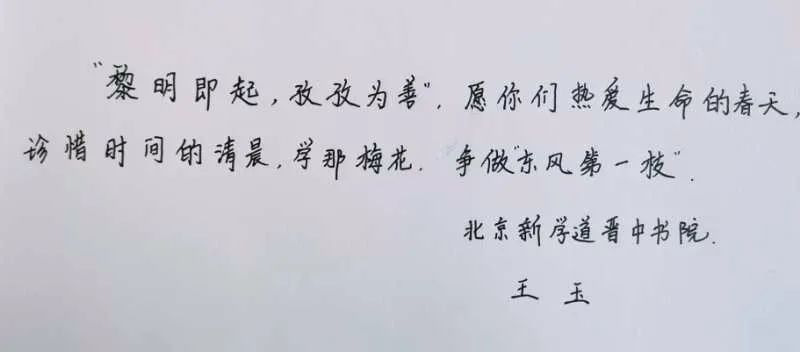 "黎明即起，孜孜为善"．愿你们热爱生命的春天，
珍惜时间的清晨，学那梅花．争做"东风第一枝"．
北京新学道晋中书院．
王玉